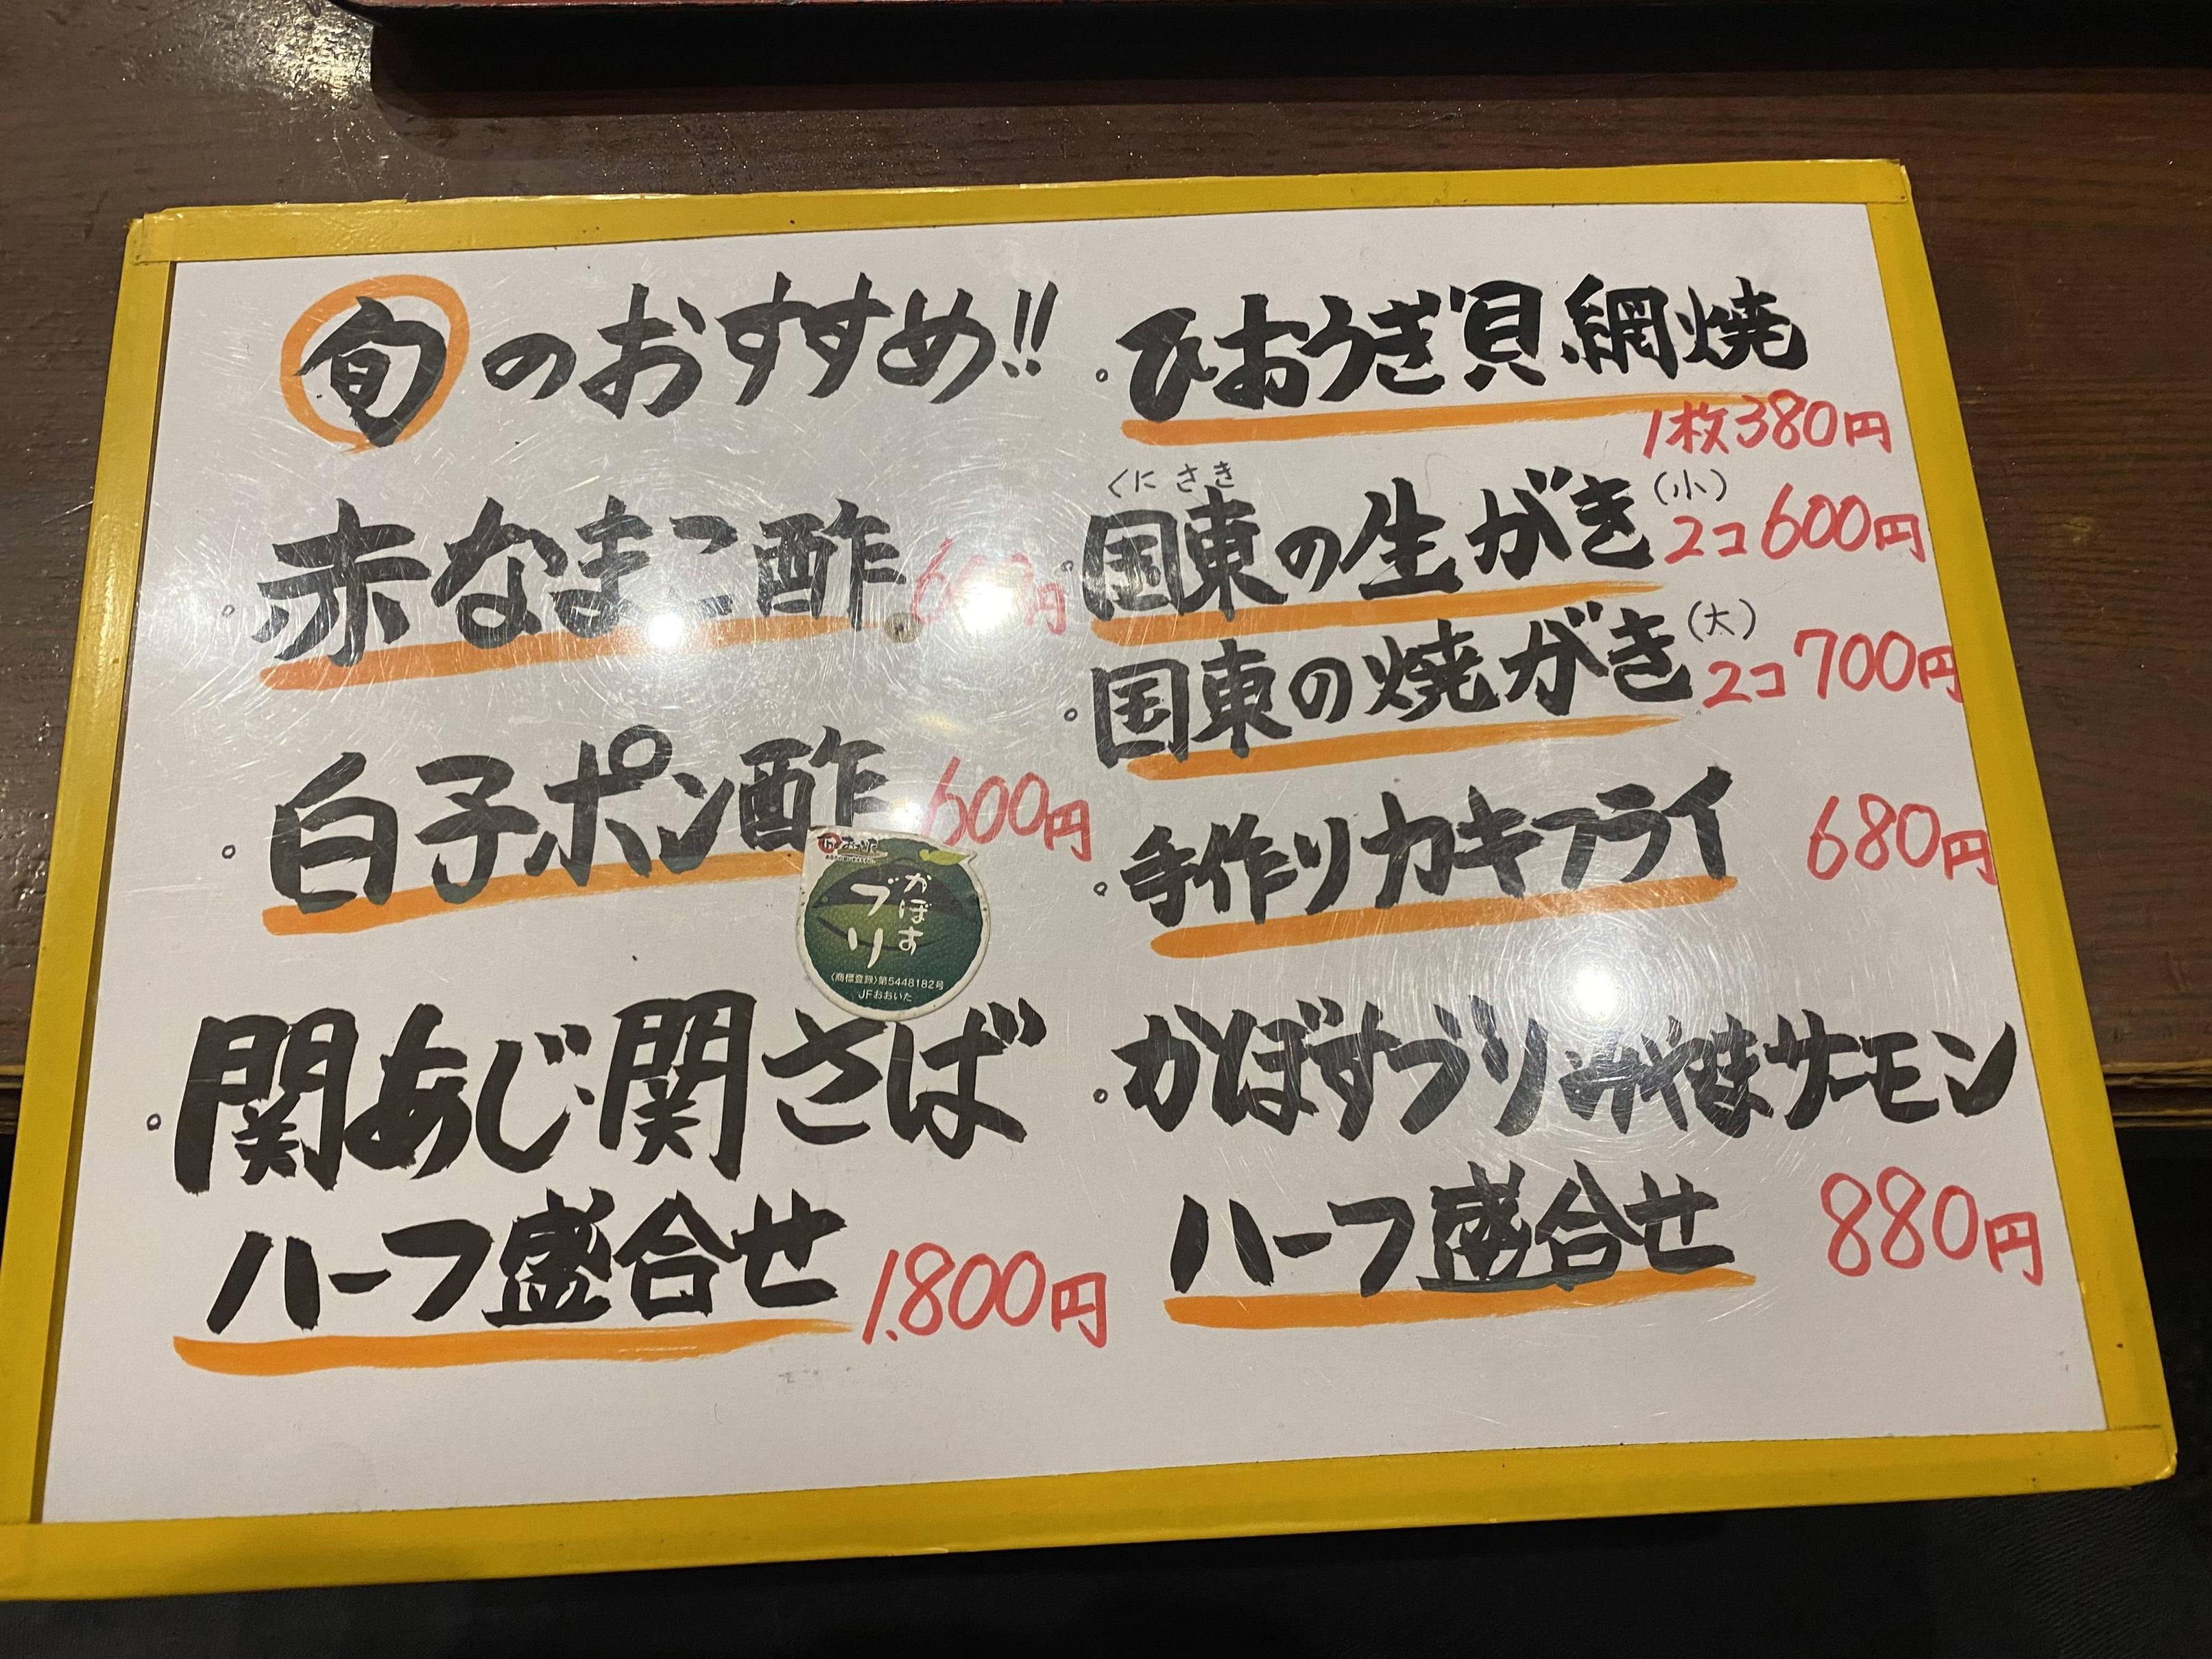 旬のおすすめ!!
赤なまこ酢
白子ポン酢 600円
かぼす
ブリ
〈商標登録〉第5448182号
JFおおいた
関あじ・関さば
ハーフ盛合せ 1.800円
ひおうぎ貝網焼
1枚380円
くにさき
国東の生がき(小) 2コ600円
国東の焼がき(大) 2コ700円
手作りカキフライ 680円
かぼすブリみやまサーモン
ハーフ盛合せ 880円